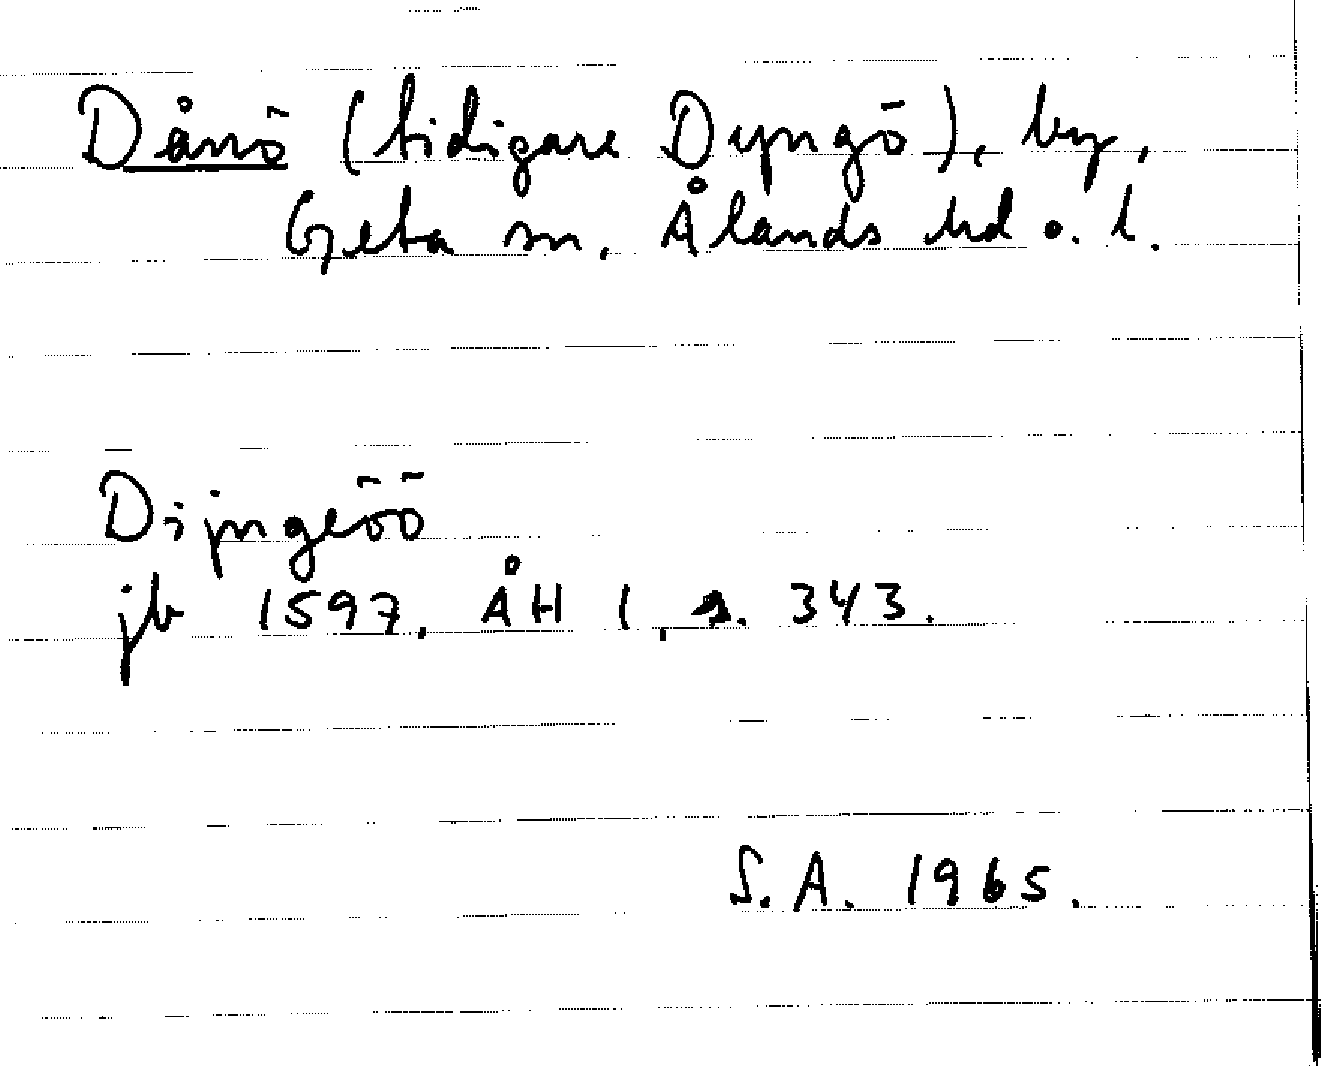 Dånö (tidigare Dyngö), by,
Geta sn, Ålands hd o. l.
Dijngeöö
jb 1597, ÅH 1, s. 343.
S.A. 1965.